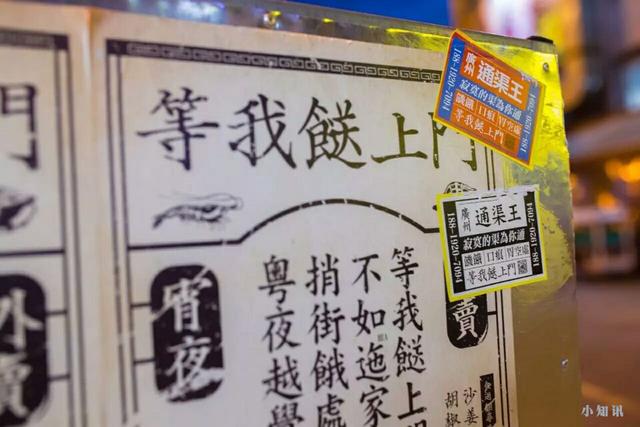 門
外賣
等我餸上門
宵夜
賣
等我餸上
不如迤家
捎街餓處
粵夜越學
沙姜
胡椒
廣州
通渠王
188-1920-7094
寂寞的渠為你通
饑餓 口痕 胃空處
等我餸上門
廣州
通渠王
188-1920-7094
188-1920-7094
寂寞的渠為你通
饑餓 口痕 胃空處
等我餸上門
小知讯